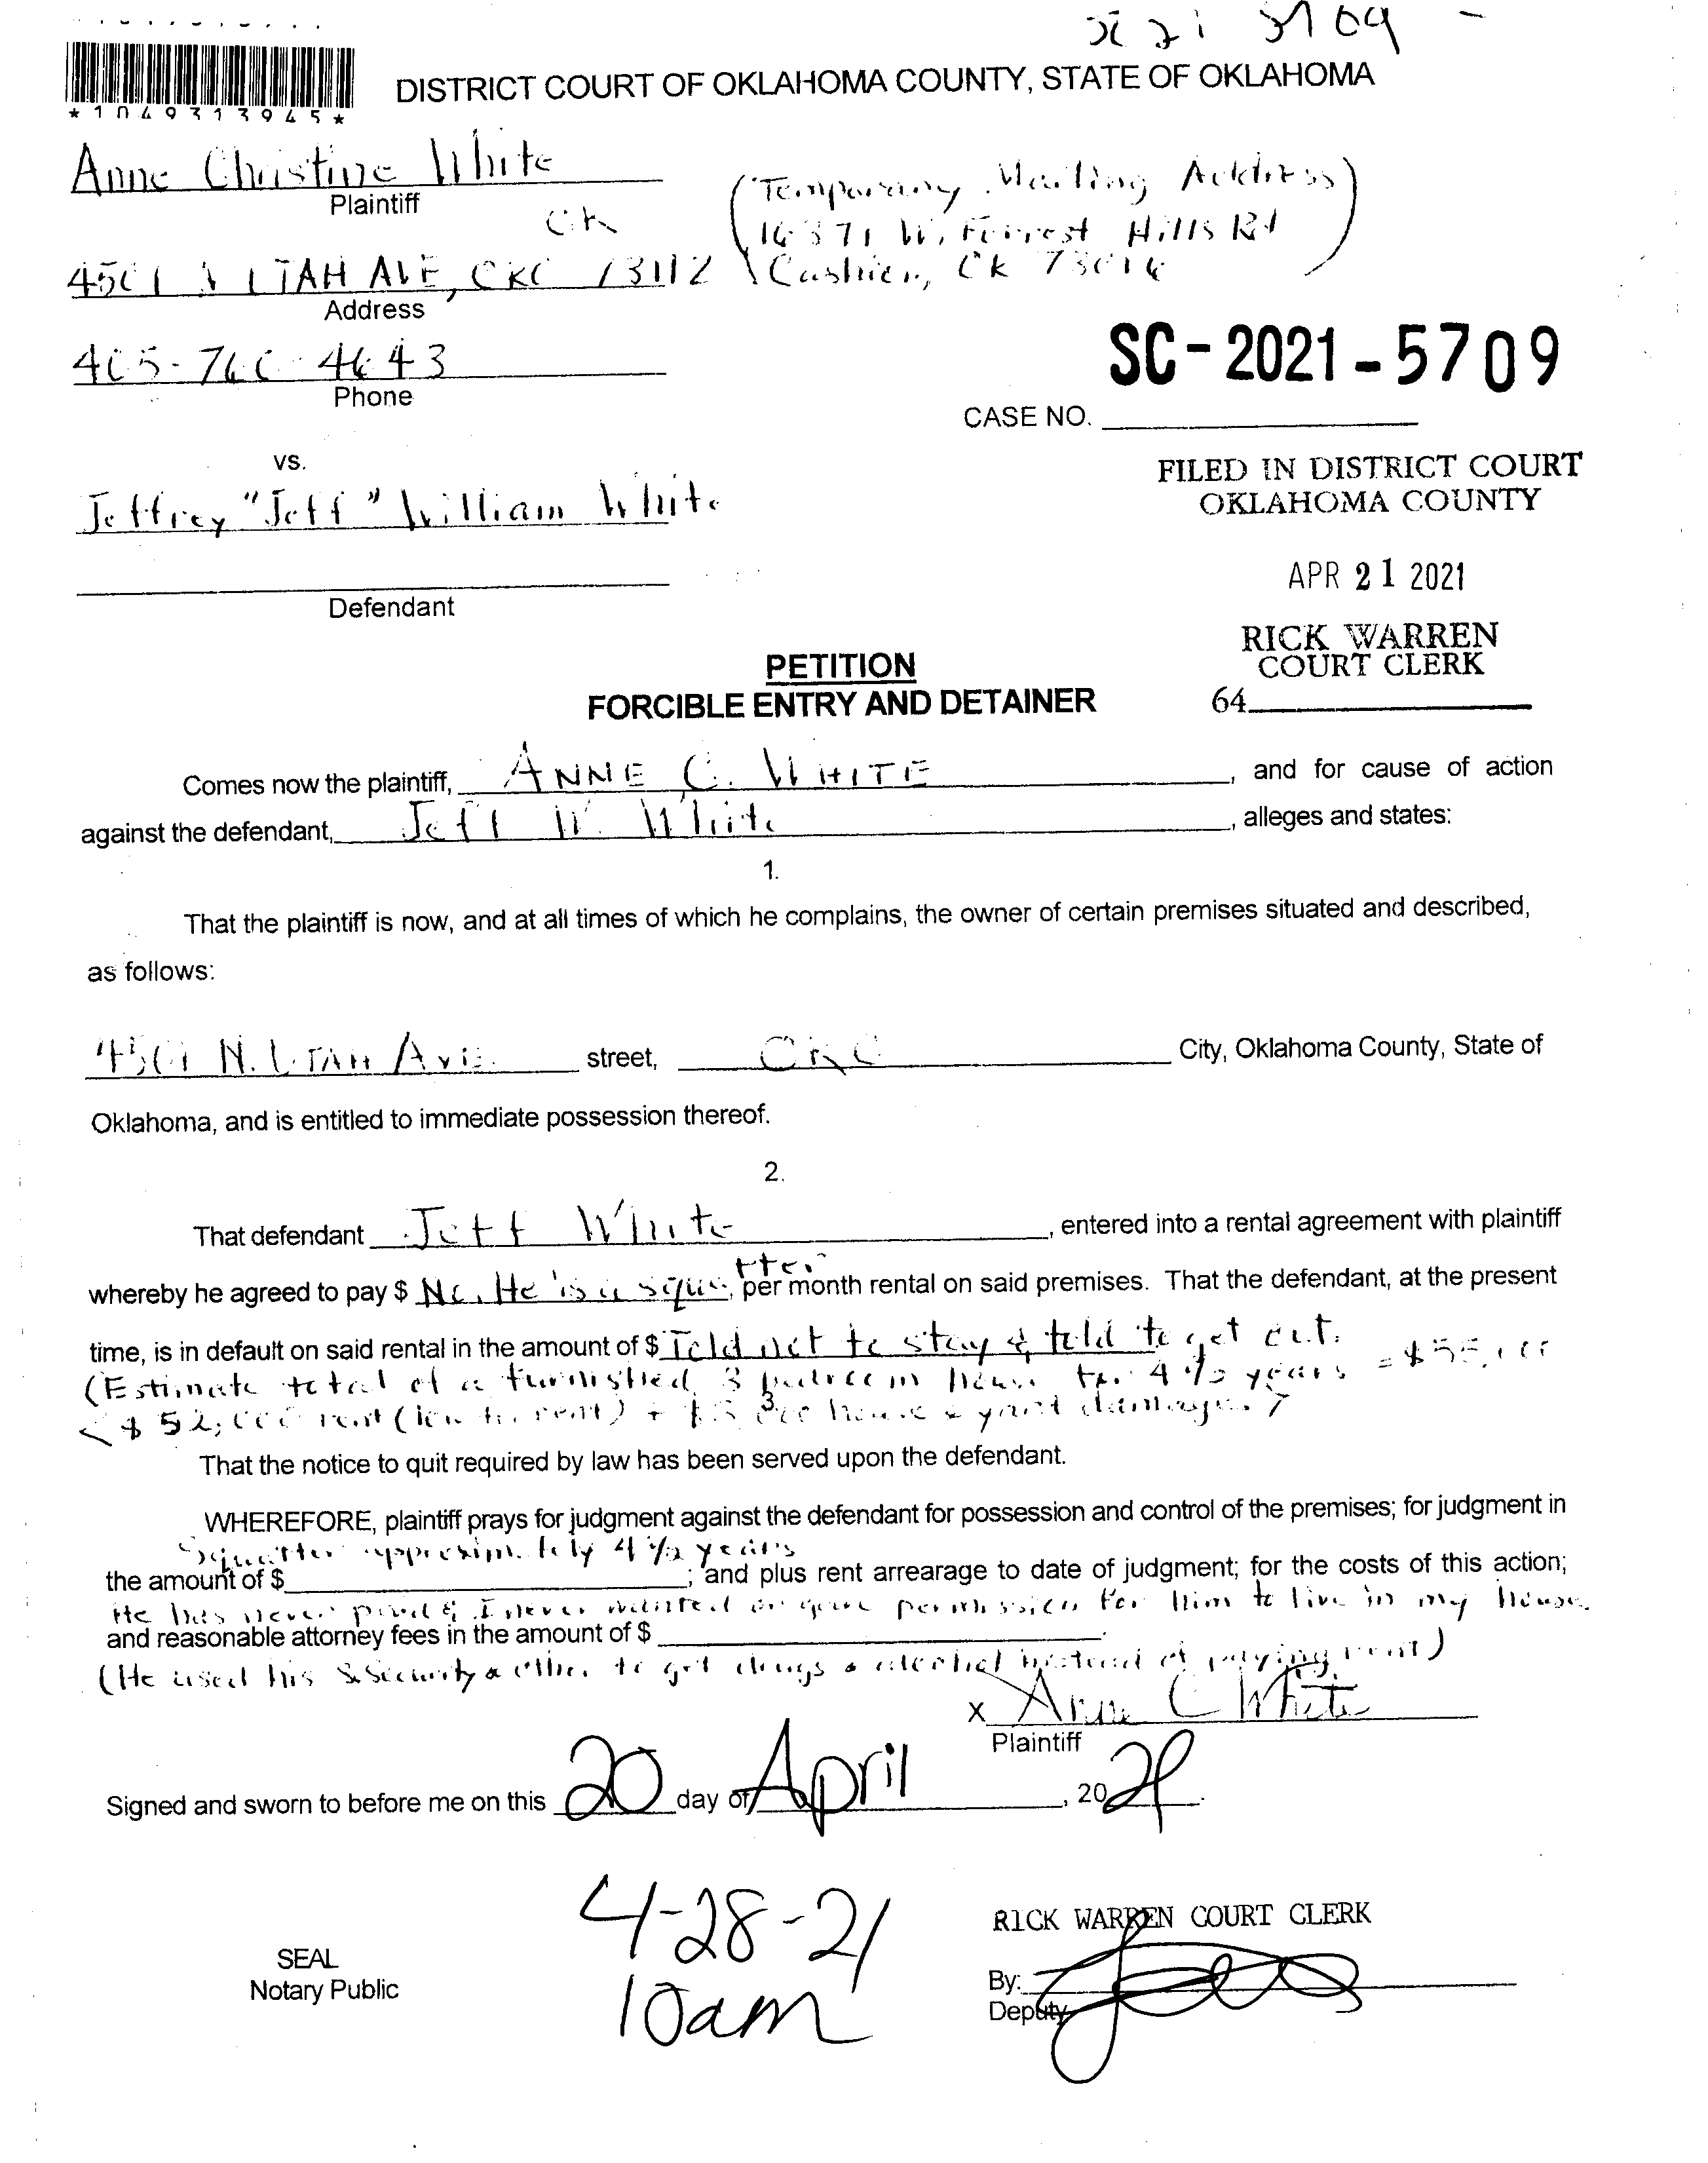 SC 21 5709 -
*1049313945*
DISTRICT COURT OF OKLAHOMA COUNTY, STATE OF OKLAHOMA
Anne Christine White
Plaintiff
(Temporary Mailing Address
OK
W. Forrest Hills Rd
4501 N UTAH AVE, OKC 73112
Cashion, Ok 73016)
Address
405-760-4643
Phone
SC-2021-5709
CASE NO.
vs.
FILED IN DISTRICT COURT
OKLAHOMA COUNTY
Jeffrey "Jeff" William White
APR 21 2021
Defendant
RICK WARREN
COURT CLERK
64
PETITION
FORCIBLE ENTRY AND DETAINER
Comes now the plaintiff, ANNE C. WHITE, and for cause of action
against the defendant, Jeff W. White, alleges and states:
1.
That the plaintiff is now, and at all times of which he complains, the owner of certain premises situated and described,
as follows:
4501 N. UTAH Ave. street, OKC City, Oklahoma County, State of
Oklahoma, and is entitled to immediate possession thereof.
2.
That defendant Jeff White, entered into a rental agreement with plaintiff
whereby he agreed to pay $ No. He is a squatter, per month rental on said premises. That the defendant, at the present
time, is in default on said rental in the amount of $ Told not to stay & told to get out.
(Estimate total of a furnished 3 bedroom house for 4 1/2 years = $55,000
<$ 52,000 rent (low for rent) + $3,000 house & yard damages.>
That the notice to quit required by law has been served upon the defendant.
WHEREFORE, plaintiff prays for judgment against the defendant for possession and control of the premises; for judgment in
Squatter approximately 4 1/2 years
the amount of $; and plus rent arrearage to date of judgment; for the costs of this action;
He has never paid & I never wanted or gave permission for him to live in my house.
and reasonable attorney fees in the amount of $.
(He used his S Security & other to get drugs & alcohol instead of paying rent)
X Anne C White
Plaintiff
Signed and sworn to before me on this 20 day of April, 2021.
4-28-21
10am
RICK WARREN COURT CLERK
SEAL
Notary Public
By:
Deputy